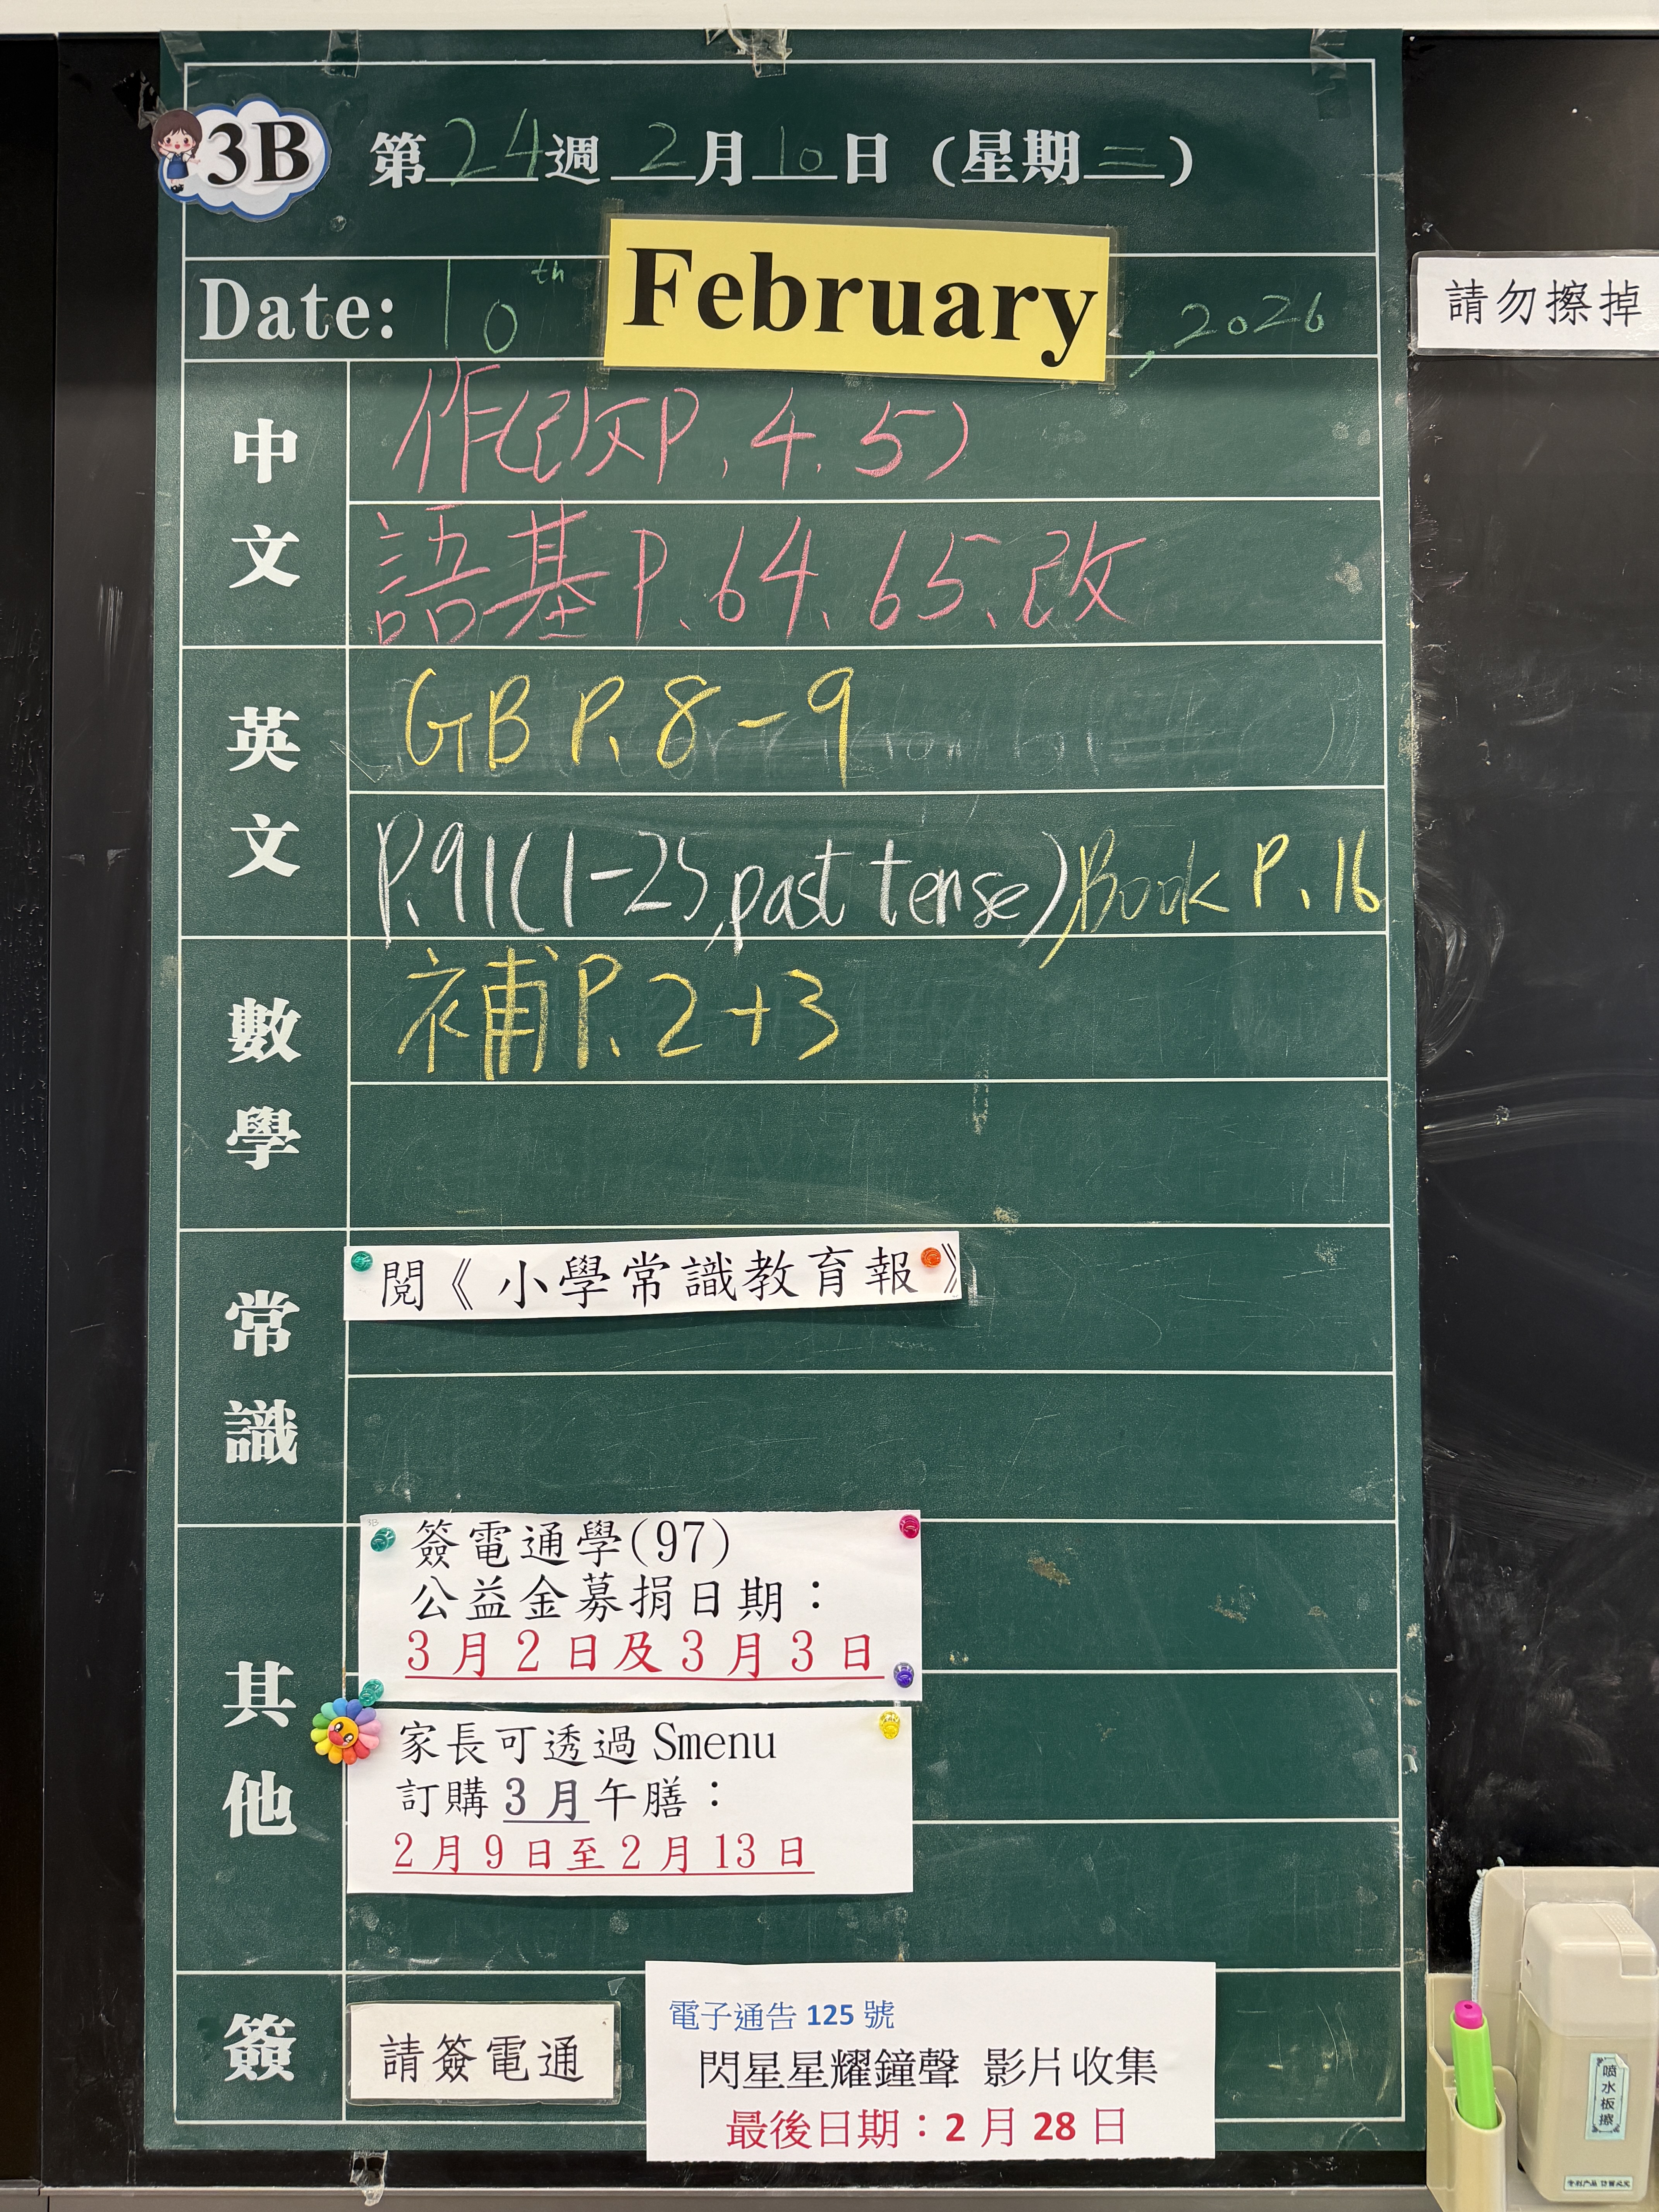 3B 第24週 2月10日 (星期二)
Date: 10th February, 2026
請勿擦掉
中文
作(改P.4.5)
語基P.64.65、改
英文
GB P.8-9
P.91(1-25,past tense),Book P.16
數學
補P.2+3
常識
閱《小學常識教育報》
其他
簽電通學(97)
公益金募捐日期：
3月2日及3月3日
家長可透過Smenu
訂購3月午膳：
2月9日至2月13日
簽
請簽電通
電子通告125號
閃星星耀鐘聲 影片收集
最後日期：2月28日
喷水板擦